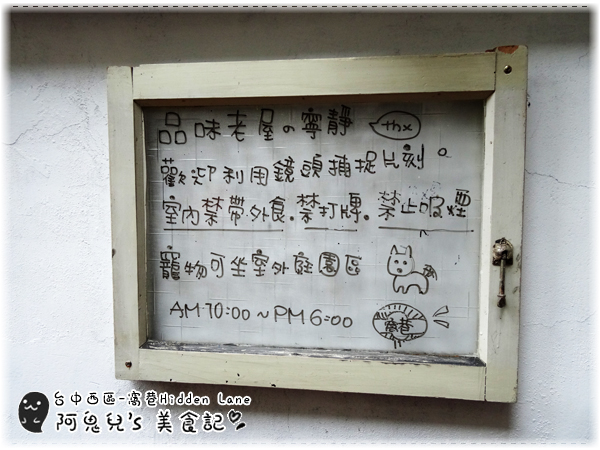 品味老屋の寧靜 thx
歡迎利用鏡頭捕捉片刻。
室內禁帶外食。禁打牌。禁止吸煙
寵物可坐室外庭園區
AM 10:00 ~ PM 6:00
窩巷
台中西區-窩巷Hidden Lane
阿鬼兒's 美食記